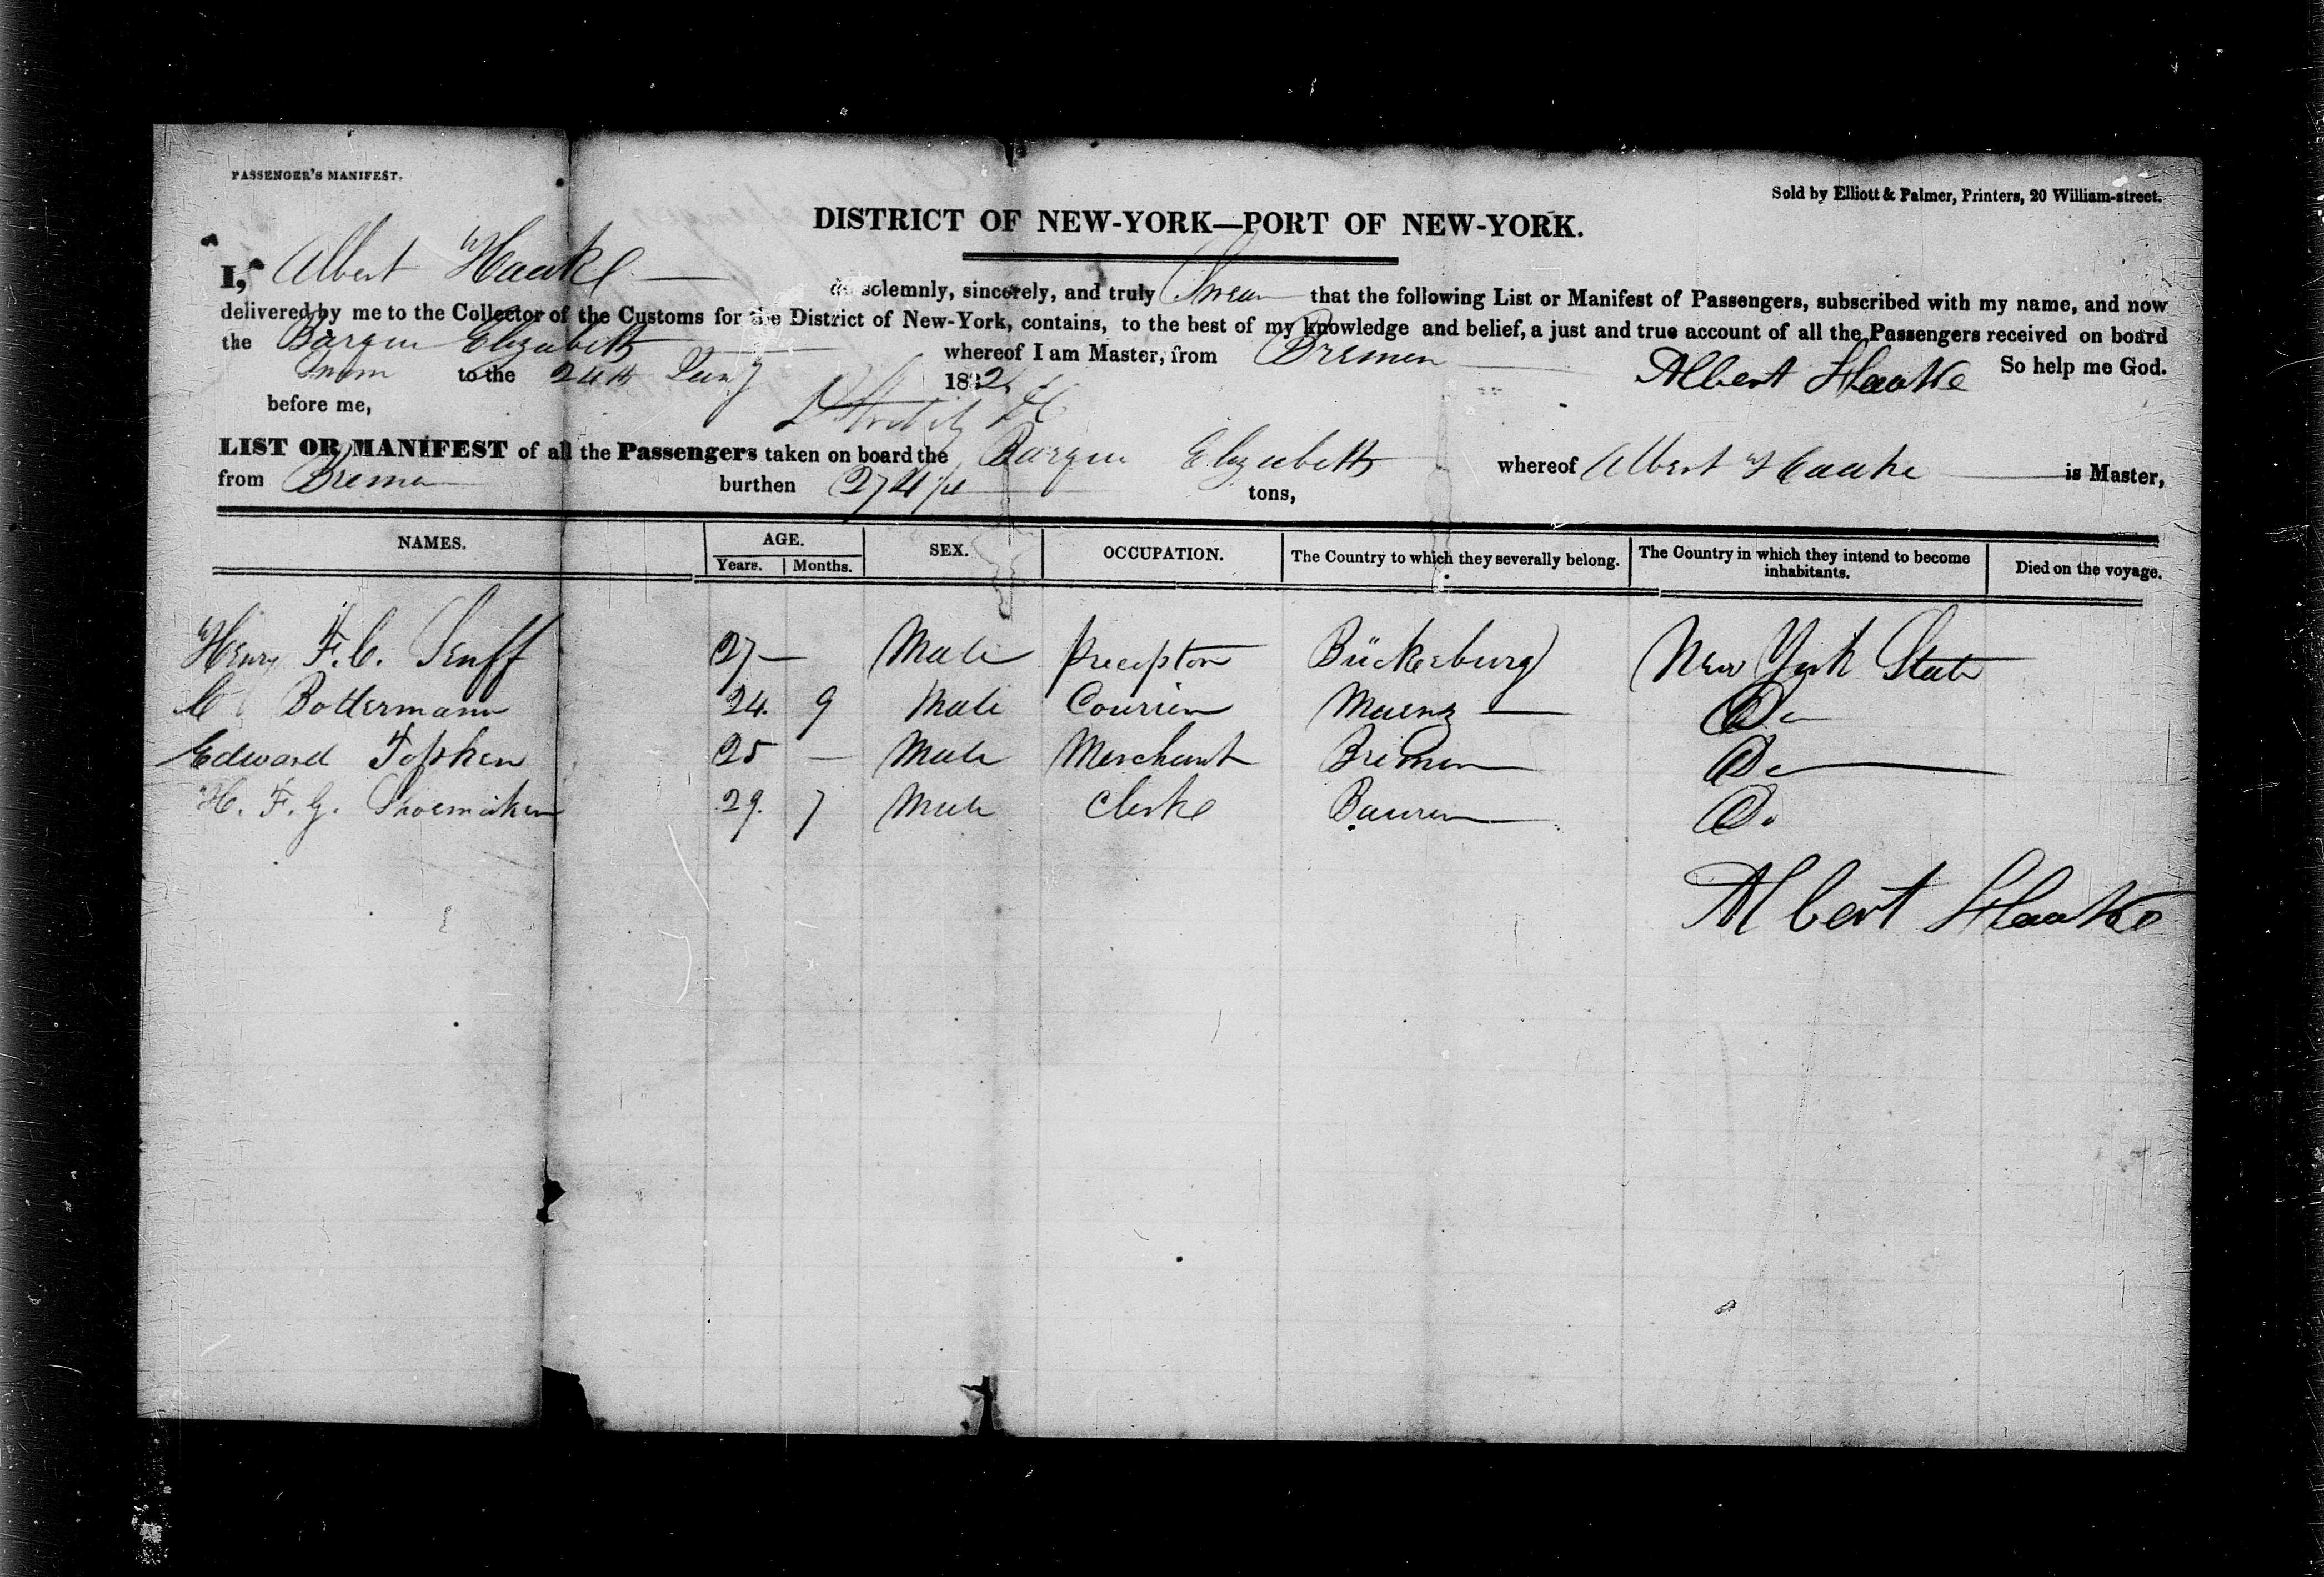 PASSENGER'S MANIFEST.
Sold by Elliott & Palmer, Printers, 20 William-street.
DISTRICT OF NEW-YORK—PORT OF NEW-YORK.
I, Albert Haake do solemnly, sincerely, and truly Swear that the following List or Manifest of Passengers, subscribed with my name, and now
delivered by me to the Collector of the Customs for the District of New-York, contains, to the best of my knowledge and belief, a just and true account of all the Passengers received on board
the Barque Elizabeth whereof I am Master, from Bremen So help me God.
Sworn to the 24th 1832 Albert Haake
before me,
LIST OR MANIFEST of all the Passengers taken on board the Barque Elizabeth whereof Albert Haake is Master,
from Bremen burthen 274 tons,
NAMES. AGE. SEX. OCCUPATION. The Country to which they severally belong. The Country in which they intend to become inhabitants. Died on the voyage.
Years. Months.
Henry F. C. Senff 27 — Male Preceptor Bückeburg New York State
C Bottermann 24. 9 Male Courrier Maenz — Do
Edward Topken 25 — Male Merchant Bremen Do
H. F. G. Shoemaker 29. 7 Male Clerke Do.
Albert Haake